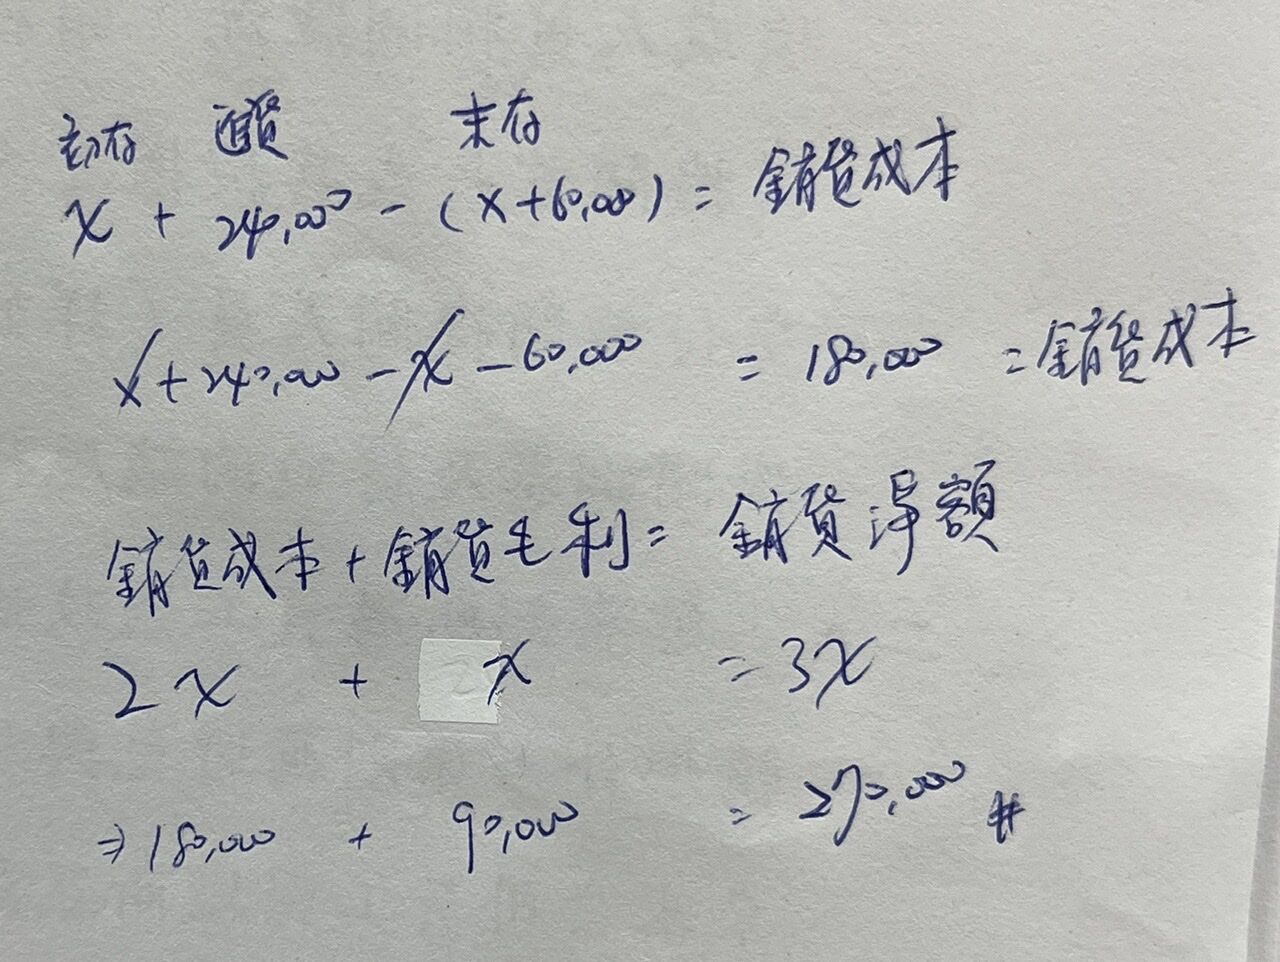 初存 進貨 末存
x + 240,000 - (x+60,000) = 銷貨成本
x+240,000 - x - 60,000 = 180,000 = 銷貨成本
銷貨成本 + 銷貨毛利 = 銷貨淨額
2x + x = 3x
⇒ 180,000 + 90,000 = 270,000 #